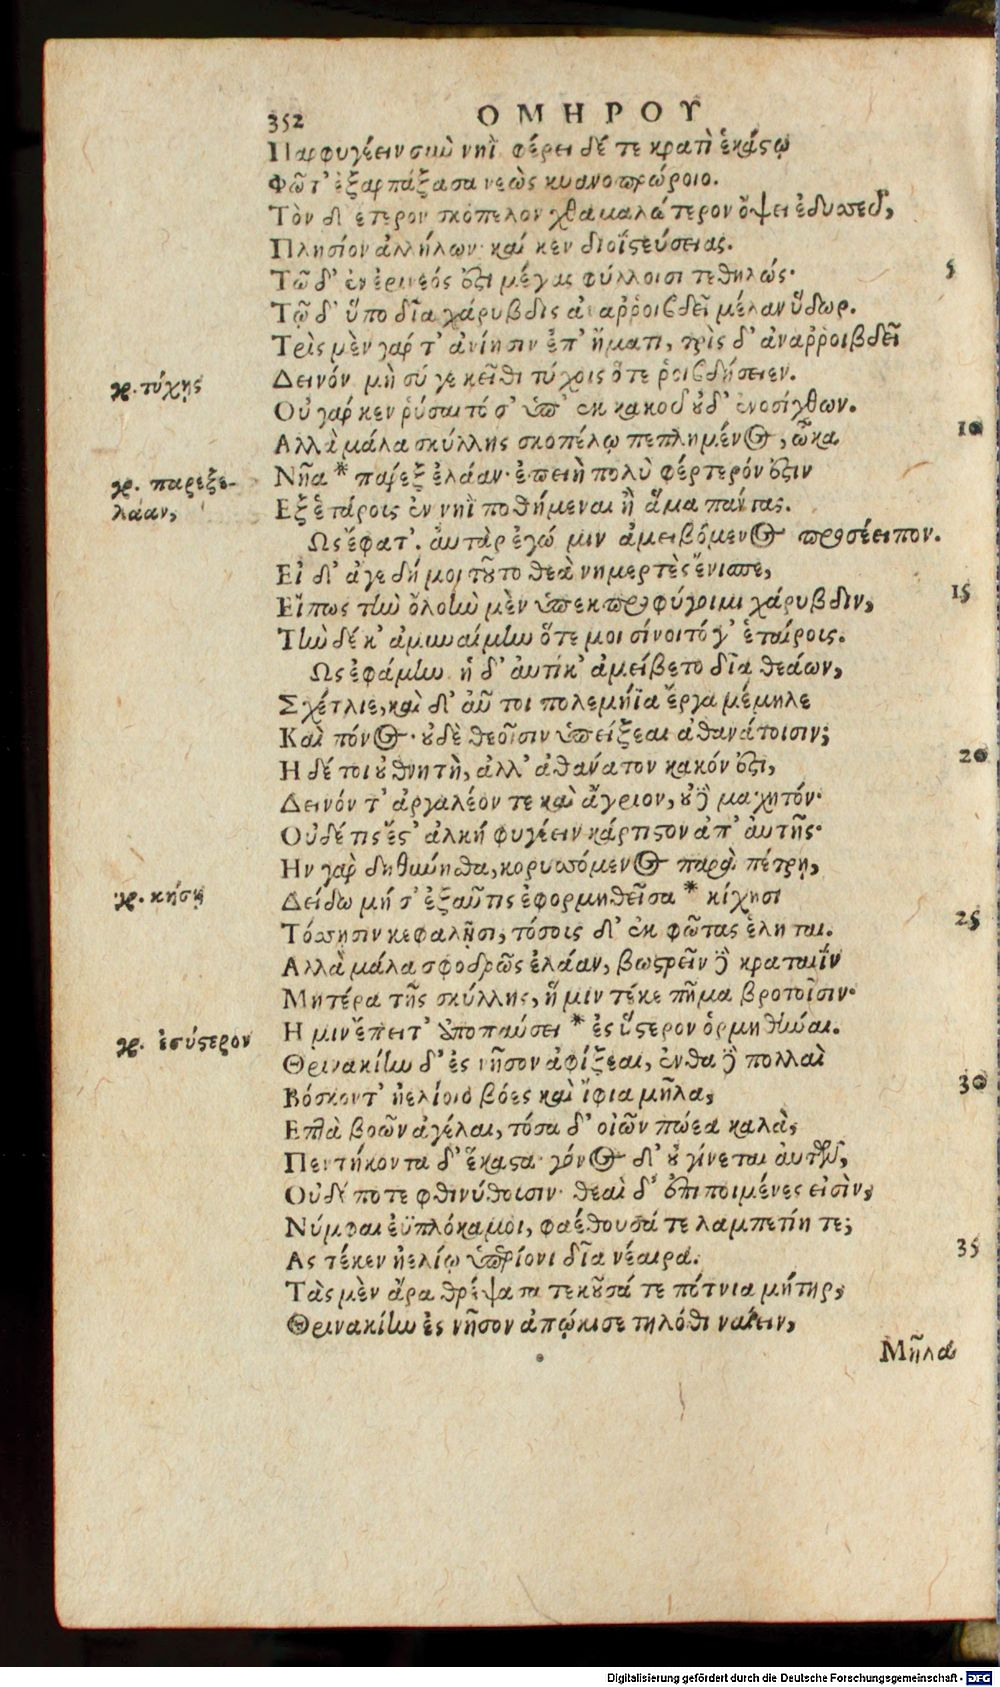 352 ΟΜΗΡΟΥ
Παρφυγέειν σὺν νηΐ· φέρει δέ τε κρατὶ ἑκάστῳ
Φῶτ' ἐξαρπάξασα νεὼς κυανοπρώροιο.
Τὸν δ' ἕτερον σκόπελον χθαμαλώτερον ὄψει ὀδυσσεῦ,
Πλησίον ἀλλήλων· καί κεν διοϊστεύσειας.
Τῷ δ' ἐν ἐρινεός ἐστι μέγας φύλλοισι τεθηλώς· 5
Τῷ δ' ὕπο δῖα χάρυβδις ἀναῤῥοιβδεῖ μέλαν ὕδωρ.
Τρὶς μὲν γάρ τ' ἀνίησιν ἐπ' ἤματι, τρὶς δ' ἀναῤῥοιβδεῖ
γρ. τύχῃς Δεινόν· μὴ σύ γε κεῖθι τύχοις ὅτε ῥοιβδήσειεν.
Οὐ γάρ κεν ῥύσαιτό σ' ὑπ' ἐκ κακοῦ οὐδ' ἐνοσίχθων.
Αλλὰ μάλα σκύλλης σκοπέλῳ πεπλημένος, ὦκα 10
γρ. παρεξε- Νῆα * παρὲξ ἐλάαν· ἐπειὴ πολὺ φέρτερόν ἐστιν
λάαν, Εξ ἑτάροις ἐν νηῒ ποθήμεναι ἢ ἅμα πάντας.
Ως ἔφατ'. αὐτὰρ ἐγώ μιν ἀμειβόμενος προσέειπον.
Εἰ δ' ἄγε δή μοι τοῦτο θεὰ νημερτὲς ἔνισπε,
Εἴπως τὴν ὀλοὴν μὲν ὑπεκπροφύγοιμι χάρυβδιν, 15
Τὴν δέ κ' ἀμυναίμην ὅτε μοι σίνοιτό γ' ἑταίροις.
Ως ἐφάμην· ἡ δ' αὐτίκ' ἀμείβετο δῖα θεάων,
Σχέτλιε, καὶ δ' αὖ τοι πολεμήϊα ἔργα μέμηλε
Καὶ πόνος· οὐδὲ θεοῖσιν ὑπείξεαι ἀθανάτοισιν;
Η δέ τοι οὐ θνητὴ, ἀλλ' ἀθάνατον κακόν ἐστι, 20
Δεινόν τ' ἀργαλέον τε καὶ ἄγριον, οὐδὲ μαχητόν·
Οὐδέ τις ἔστ' ἀλκή φυγέειν κάρτιστον ἀπ' αὐτῆς·
Ην γὰρ δηθύνησθα, κορυσσόμενος παρὰ πέτρῃ,
γρ. κήσῃ Δείδω μή σ' ἐξαῦτις ἐφορμηθεῖσα * κίχησι
Τόσσησιν κεφαλῇσι, τόσοις δ' ἐκ φῶτας ἕληται. 25
Αλλὰ μάλα σφοδρῶς ἐλάαν, βωστρεῖν δὲ κραταιΐν
Μητέρα τῆς σκύλλης, ἥ μιν τέκε πῆμα βροτοῖσιν·
Η μιν ἔπειτ' ἀποπαύσει * ἐς ὕστερον ὁρμηθῆναι.
γρ. ἐσύστερον Θρινακίην δ' ἐς νῆσον ἀφίξεαι, ἔνθα δὲ πολλαὶ
Βόσκοντ' ἠελίοιο βόες καὶ ἴφια μῆλα, 30
Επτὰ βοῶν ἀγέλαι, τόσα δ' οἰῶν πώεα καλὰ,
Πεντήκοντα δ' ἕκαστα· γόνος δ' οὐ γίνεται αὐτῶν,
Οὐδέ ποτε φθινύθοισιν· θεαὶ δ' ἐπιποιμένες εἰσὶν,
Νύμφαι ἐϋπλόκαμοι, φαέθουσά τε λαμπετίη τε;
Ας τέκεν ἠελίῳ ὑπερίονι δῖα νέαιρα. 35
Τὰς μὲν ἄρα θρέψασα τεκοῦσά τε πότνια μήτηρ,
Θρινακίην ἐς νῆσον ἀπῴκισε τηλόθι ναίειν,
Μῆλα
Digitalisierung gefördert durch die Deutsche Forschungsgemeinschaft - DFG